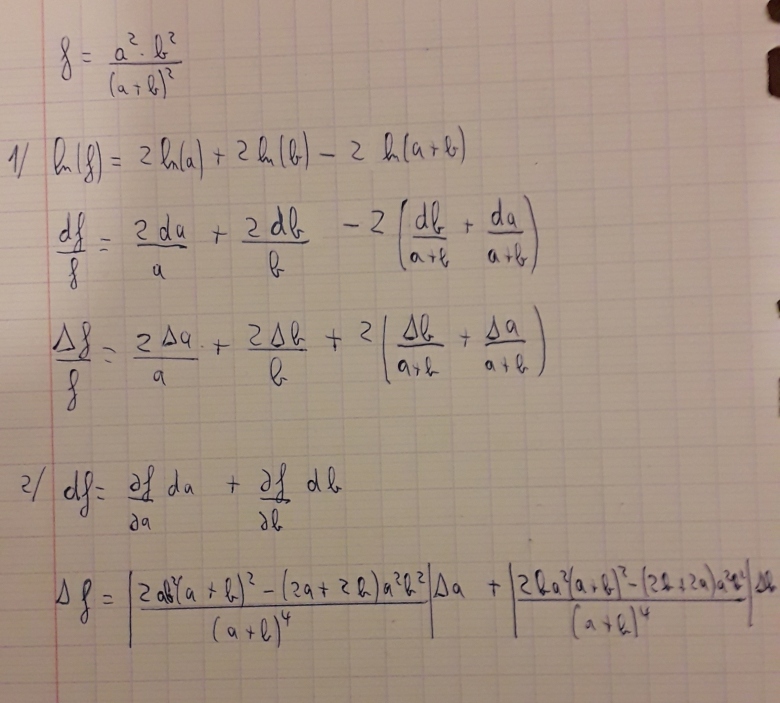 f = a² · b² / (a+b)²
1/ ln(f) = 2 ln(a) + 2 ln(b) − 2 ln(a+b)
df/f = 2 da/a + 2 db/b − 2 (db/a+b + da/a+b)
Δf/f = 2 Δa/a + 2 Δb/b + 2 (Δb/a+b + Δa/a+b)
2/ df = ∂f/∂a da + ∂f/∂b db
Δf = |2ab²(a+b)² − (2a+2b)a²b² / (a+b)⁴| Δa + |2ba²(a+b)² − (2b+2a)a²b² / (a+b)⁴| Δb